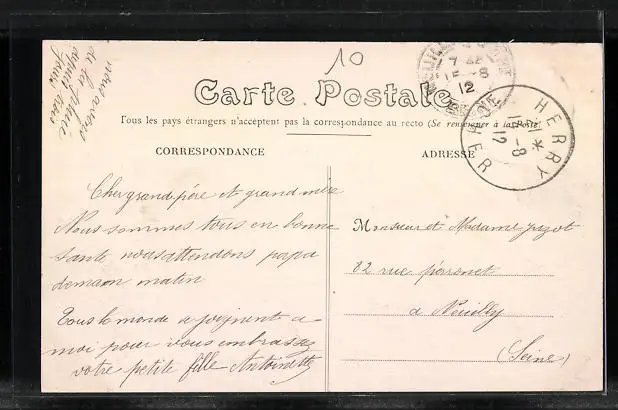 10
nous avons
de la pluie
depuis trois
jours
Carte Postale
Tous les pays étrangers n'acceptent pas la correspondance au recto (Se renseigner à la Poste)
CORRESPONDANCE
ADRESSE
HERRY
CHER
14-8
12
7
15-8
12
Cher grand père et grand mère
Nous sommes tous en bonne
santé nous attendons papa
demain matin
Tous le monde se joignent a
moi pour vous embrassez
votre petite fille Antoinette
Monsieur et Madame
82 rue perronet
a Neuilly
(Seine)